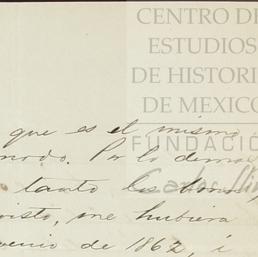 CENTRO DE
ESTUDIOS
DE HISTORI
DE MEXICO
FUNDACIÓ
Carlos Sli
que es el mismo
modo. Por lo demas
tanto los
visto, me hubiera
de 1862, i